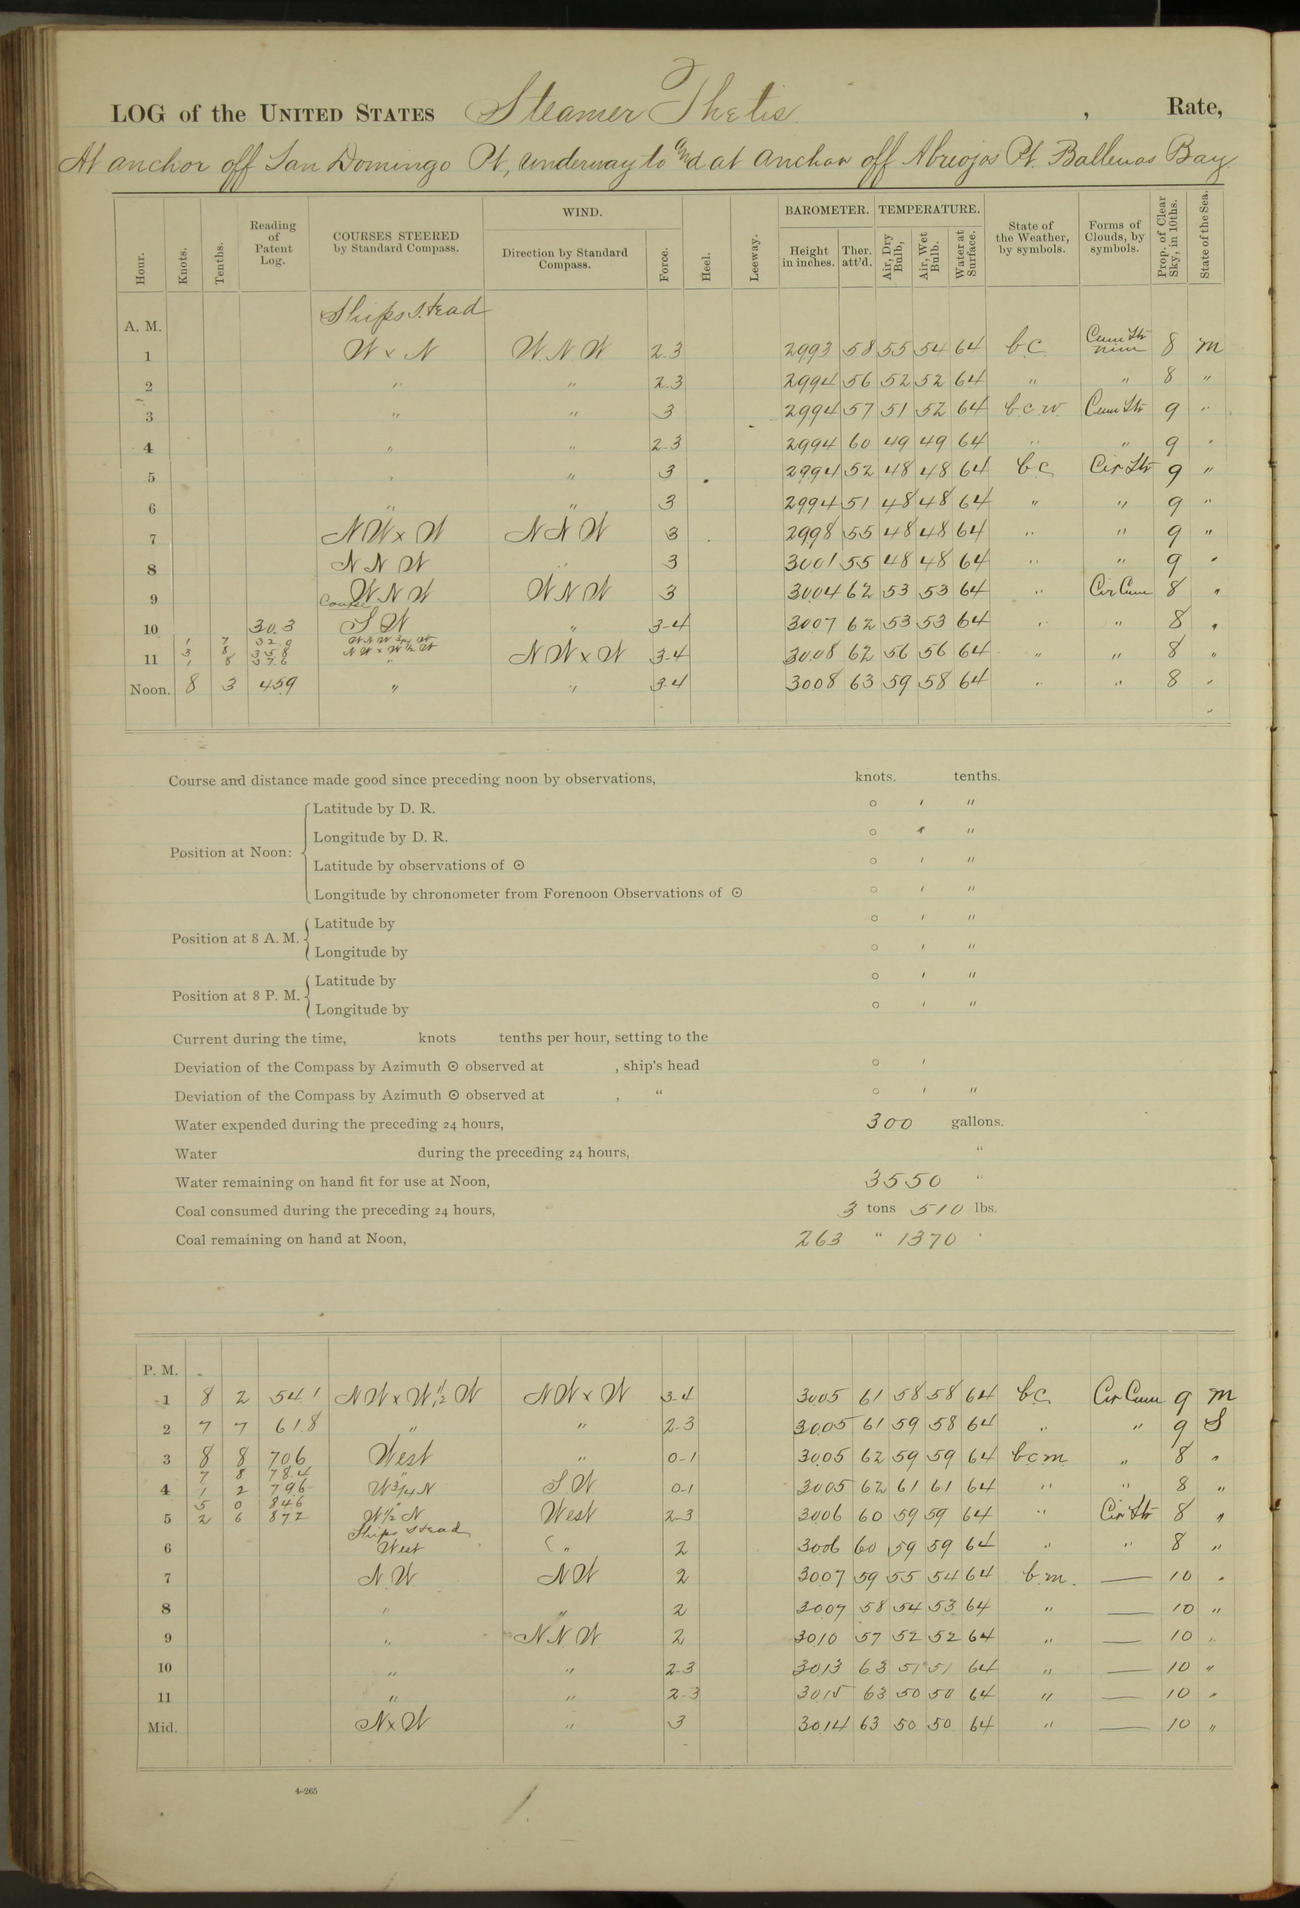 LOG of the UNITED STATES Steamer Thetis , Rate,
At anchor off San Domingo Pt, underway to and at anchor off Abreojos Pt. Ballenas Bay
Hour. Knots. Tenths. Reading of Patent Log. COURSES STEERED by Standard Compass. WIND. Direction by Standard Compass. Force. Heel. Leeway. BAROMETER. Height in inches. Ther. att'd. TEMPERATURE. Air, Dry Bulb, Air, Wet Bulb. Water at Surface. State of the Weather, by symbols. Forms of Clouds, by symbols. Prop. of Clear Sky, in 10ths. State of the Sea.
A. M. Ships Head
1 W x N W.N.W 2.3 2993 58 55 54 64 b.c. Cum Str nim 8 m
2 " " 2.3 2994 56 52 52 64 " " 8 "
3 " " 3 2994 57 51 52 64 b.c.w. Cum Str 9 "
4 " " 2-3 2994 60 49 49 64 " " 9 "
5 " " 3 2994 52 48 48 64 b c Cir Str 9 "
6 " " 3 2994 51 48 48 64 " " 9 "
7 NW x W N N W 3 2998 55 48 48 64 " " 9 "
8 N N W " 3 3001 55 48 48 64 " " 9 "
9 W N W W N W 3 3004 62 53 53 64 " Cir Cum 8 "
Course
10 30.3 S W " 3-4 3007 62 53 53 64 " " 8 "
1 7 32.0 WNW 3/4 W
3 8 35.8 NW x W 1/2 W
11 1 8 37.6 " NW x W 3-4 3008 62 56 56 64 " " 8 "
Noon. 8 3 459 " " 3-4 3008 63 59 58 64 " " 8 "
Course and distance made good since preceding noon by observations, knots. tenths.
Position at Noon:
Latitude by D. R. ° ′ ″
Longitude by D. R. ° ′ ″
Latitude by observations of ☉ ° ′ ″
Longitude by chronometer from Forenoon Observations of ☉ ° ′ ″
Position at 8 A. M.
Latitude by ° ′ ″
Longitude by ° ′ ″
Position at 8 P. M.
Latitude by ° ′ ″
Longitude by ° ′ ″
Current during the time, knots tenths per hour, setting to the
Deviation of the Compass by Azimuth ☉ observed at , ship's head ° ′
Deviation of the Compass by Azimuth ☉ observed at , " ° ′ ″
Water expended during the preceding 24 hours, 300 gallons.
Water during the preceding 24 hours, "
Water remaining on hand fit for use at Noon, 3550 "
Coal consumed during the preceding 24 hours, 3 tons 510 lbs.
Coal remaining on hand at Noon, 263 " 1370 "
P. M.
1 8 2 54.1 NW x W 1/2 W NW x W 3-4 3005 61 58 58 64 b c Cir Cum 9 m
2 7 7 61.8 " " 2-3 3005 61 59 58 64 " " 9 S
3 8 8 706 West " 0-1 3005 62 59 59 64 b c m " 8 "
7 8 784 "
4 1 2 796 W 3/4 N S W 0-1 3005 62 61 61 64 " " 8 "
5 0 846 "
5 2 6 872 W 1/2 N West 2-3 3006 60 59 59 64 " Cir Str 8 "
Ships Head
6 West " 2 3006 60 59 59 64 " " 8 "
7 N W NW 2 3007 59 55 54 64 b.m. — 10 "
8 " " 2 3007 58 54 53 64 " — 10 "
9 " N N W 2 3010 57 52 52 64 " — 10 "
10 " " 2-3 3013 63 51 51 64 " — 10 "
11 " " 2-3 3015 63 50 50 64 " — 10 "
Mid. N x W " 3 3014 63 50 50 64 " — 10 "
4-265